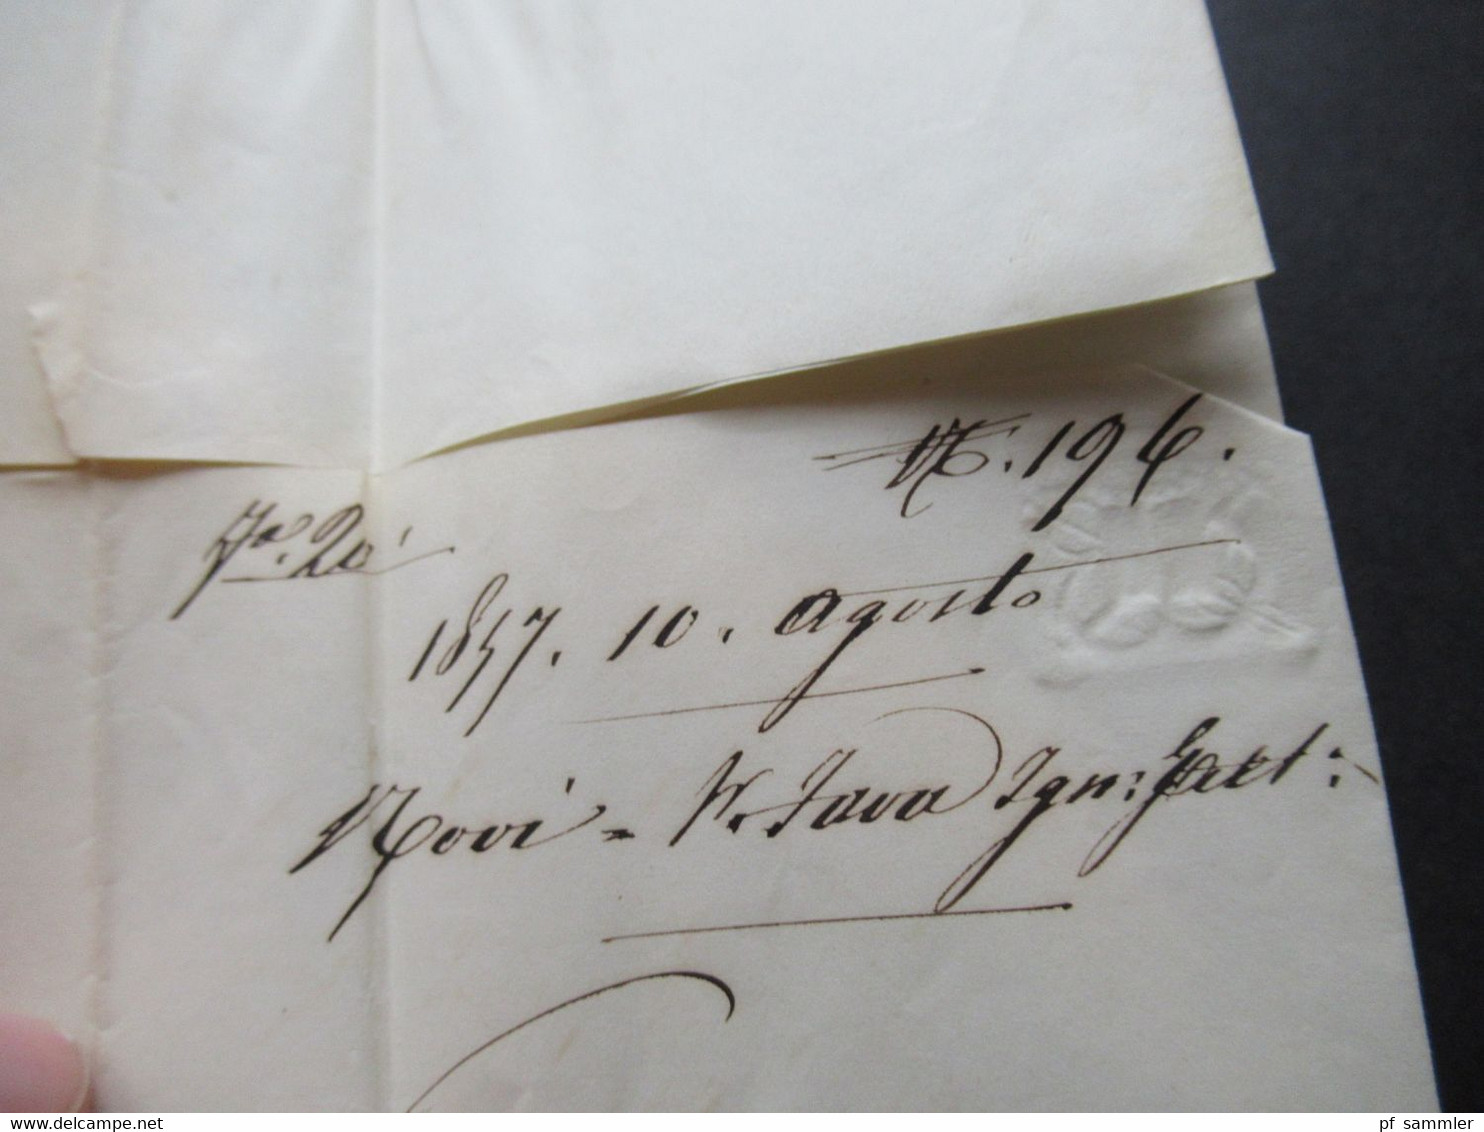 N. 196.
20
1857. 10. Agosto
Novi = F. Fava Ign:
delcampe.net
pf sammler